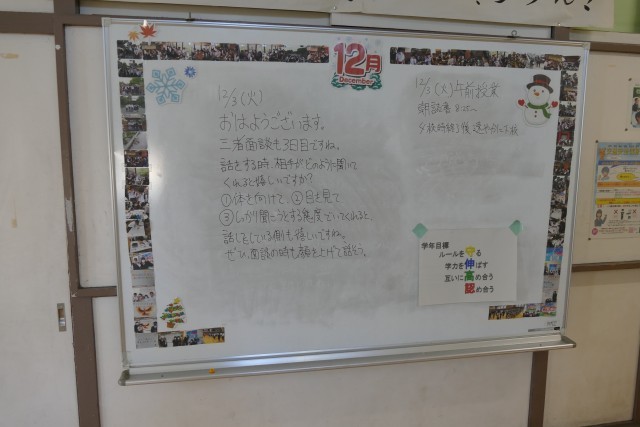 12月
December
12/3(火)
おはようございます。
三者面談も3日目ですね。
話をする時、相手がどのように聞いて
くれると嬉しいですか?
①体を向けて、②目を見て
③しっかり聞こうとする態度でいてくれると、
話しをしている側も嬉しいですね。
ぜひ、面談の時も顔を上げて話そう。
12/3(火)午前授業
朝読書
学年目標
ルールを守る
学力を伸ばす
互いに高め合う
認め合う